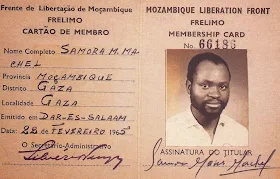 Frente de Libertação de Moçambique
FRELIMO
CARTÃO DE MEMBRO
Nome Completo SAMORA M. MA
CHEL
Província MOÇAMBIQUE
Distrito GAZA
Localidade GAZA
Emitido em DAR-ES-SALAAM
Data 28 DE FEVEREIRO 1965
O Secretário-Administrativo
MOZAMBIQUE LIBERATION FRONT
FRELIMO
MEMBERSHIP CARD
No 66186
ASSINATURA DO TITULAR
Samora Moisés Machel